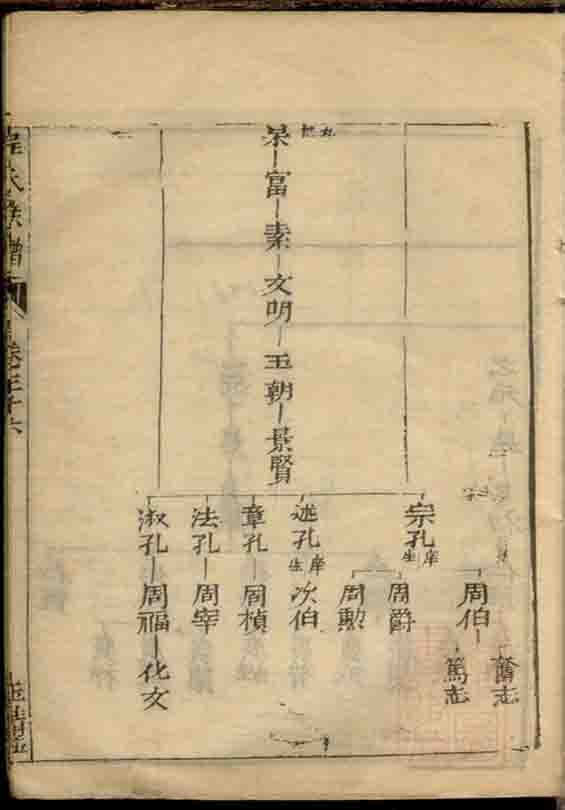 杲
富
素
文明
玉朝
景賢
宗孔 庠生
周伯
奮志
篤志
周爵
周勲
述孔 庠生
次伯
章孔
周楨
法孔
周宰
淑孔
周福
化文
氏族譜
卷三十六